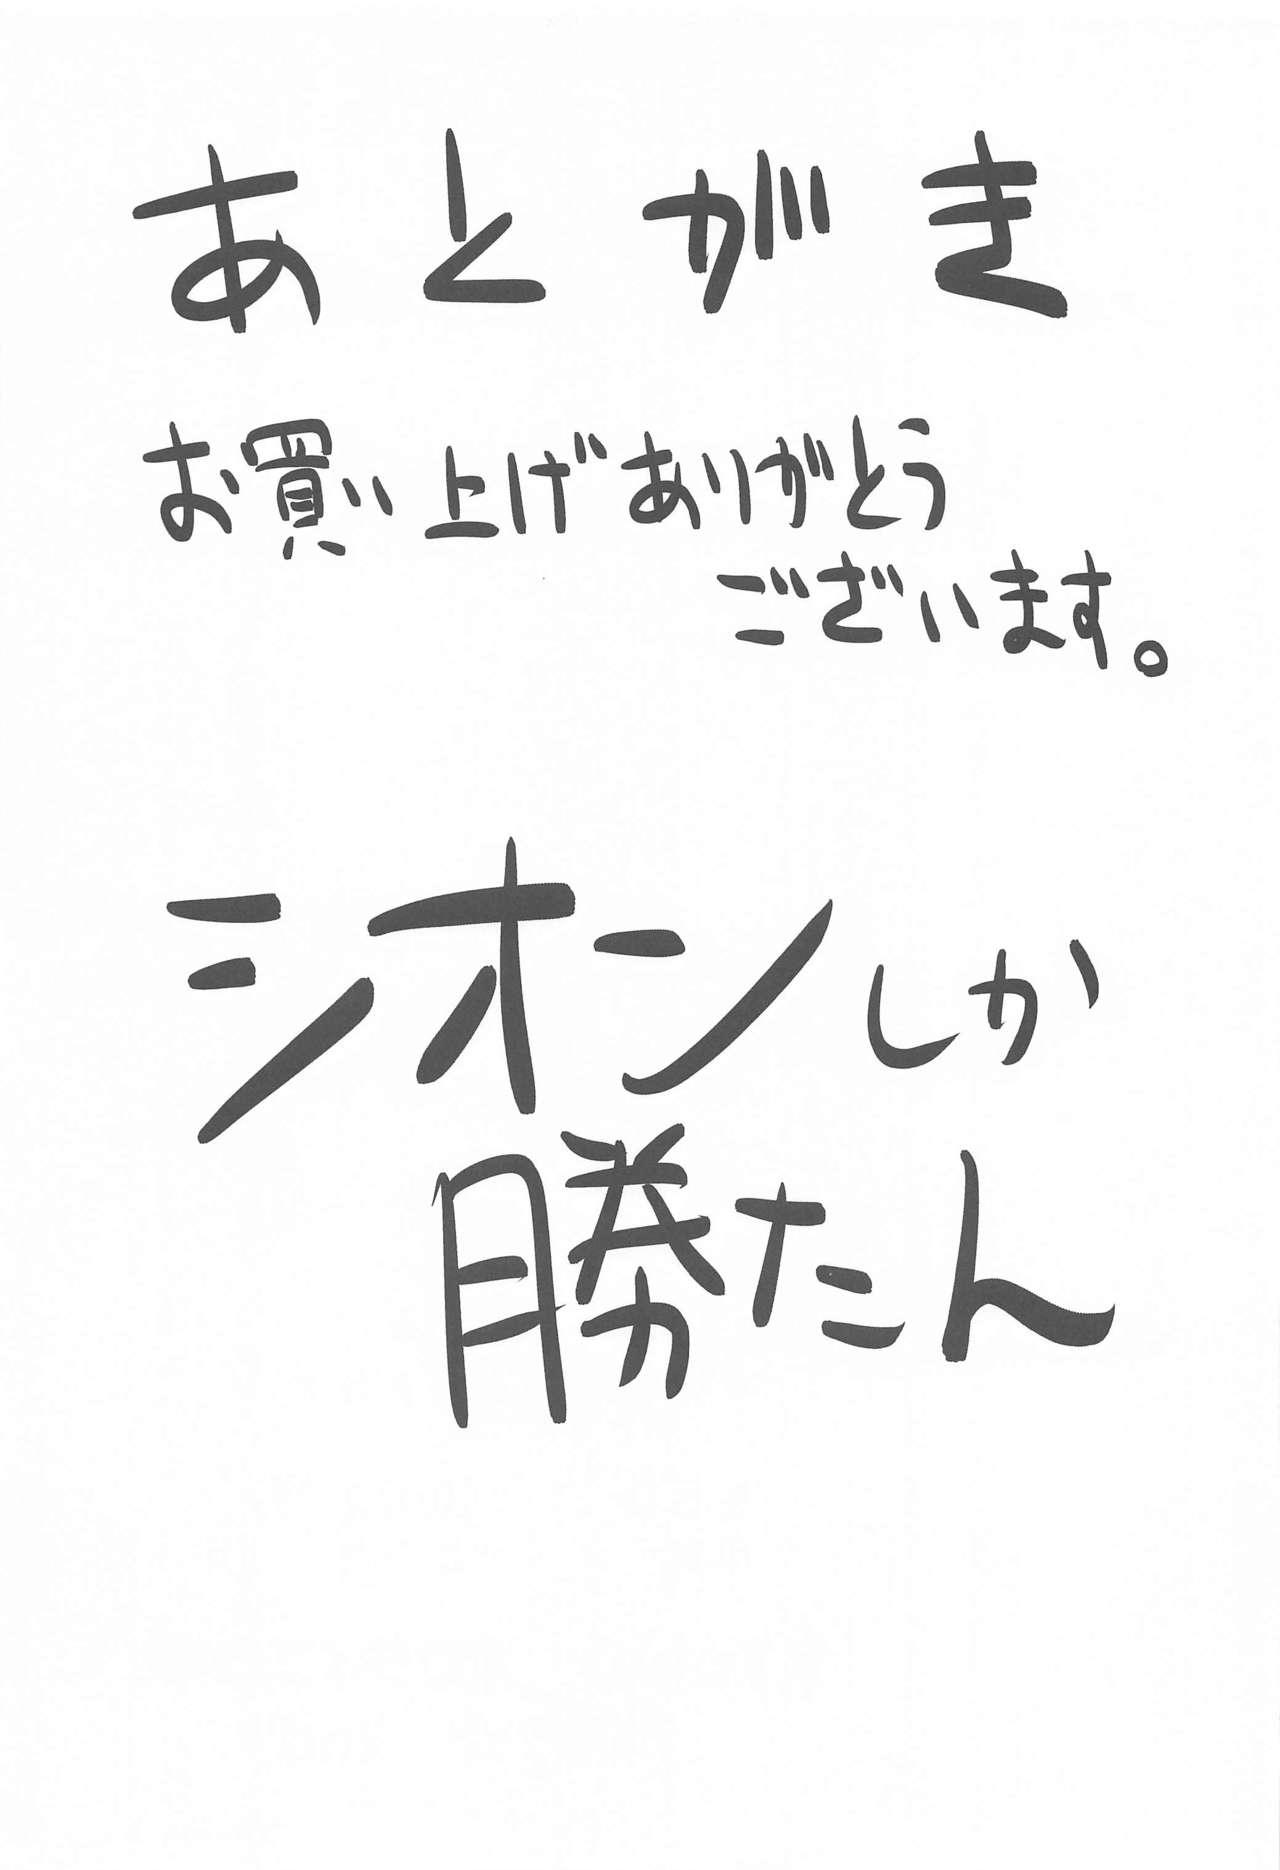 あとがき
お買い上げありがとう
ございます。
シオンしか
勝たん